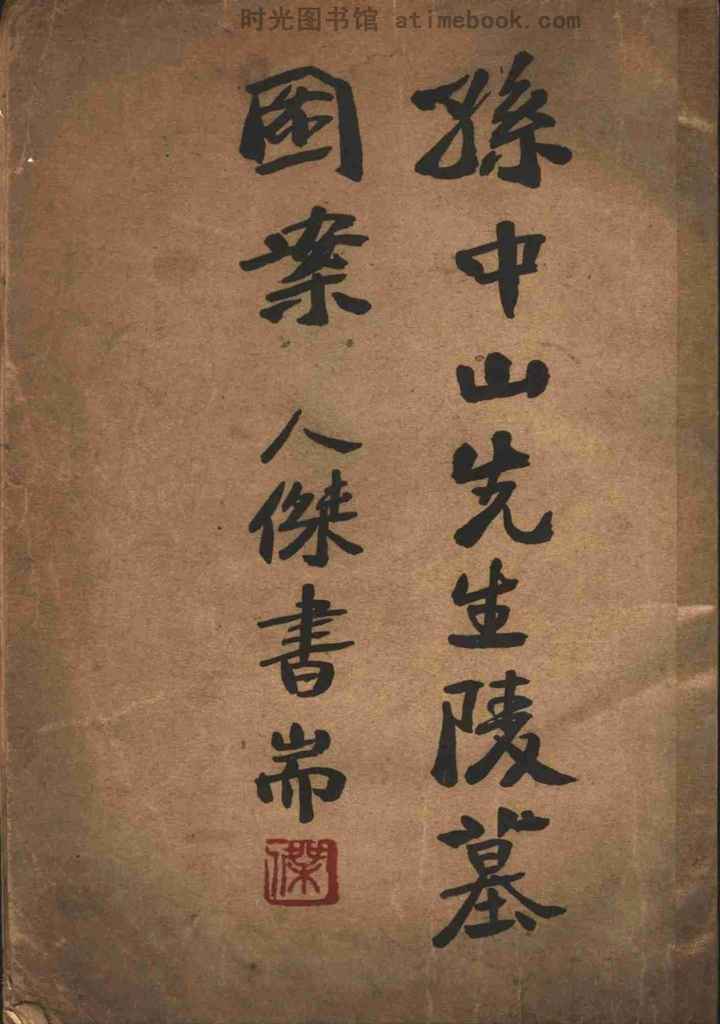 时光图书馆 atimebook.com
孫中山先生陵墓
圖案 人傑書耑
傑